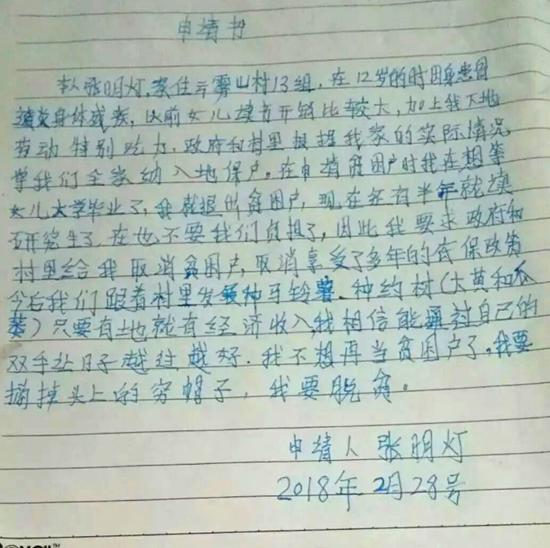 申请书
本人张明灯,家住云雾山村13组,在12岁的时因身患骨
髓炎身体残疾,以前女儿读书开销比较大,加上我下地
劳动特别吃力,政府和村里根据我家的实际情况
掌我们全家纳入地保户。在申请贫困户时我在想等
女儿大学毕业了,我就退出贫困户,现在还有半年就读
研究生了,在也不要我们负担了,因此我要求政府和
村里给我取消贫困户,取消享受了多年的低保政策
今后我们跟着村里发种马铃薯、种约材(大黄和瓜
蒌)只要有地就有经济收入,我相信能通过自己的
双手让日子越过越好.我不想再当贫困户了,我要
摘掉头上的穷帽子,我要脱贫。
申请人 张明灯
2018年2月28号